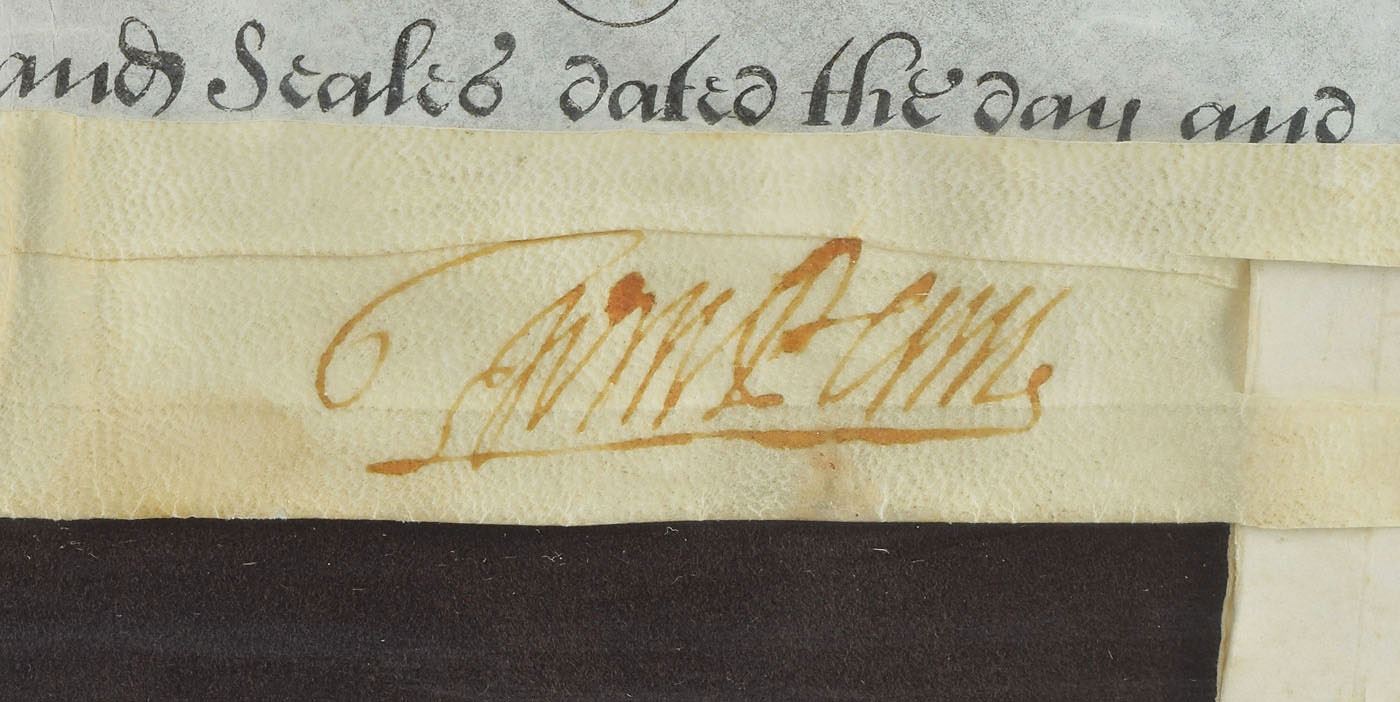 and Seales dated the day and
Wm Penn